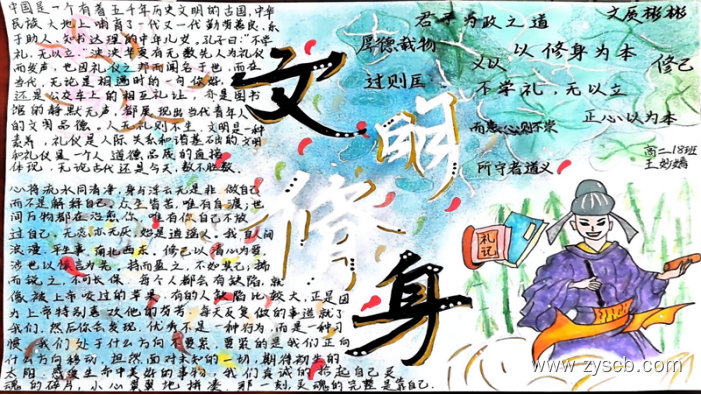 中国是一个有着五千年历史文明的古国,中华
民族大地上哺育了一代又一代勤劳善良、乐
于助人、知书达理的中华儿女,孔子曰:"不学
礼,无以立。"泱泱华夏有无数先人为礼仪
而发声,也因礼仪之邦而闻名于世,而在
当代,无论是相遇时的一句你好,
还是公交车上的相互礼让,亦是图书
馆的静默无声,都展现出当代青年人
的文明品德。人无礼则不生,文明是一种
素养,礼仪是人际关系和谐基础的文明
和礼仪是一个人道德品质的直接
体现,无论古代还是今天,数不胜数。
心将流水同清净,身与浮云无是非,做自己
而不是解释自己,众生皆苦,唯有自渡;世
间万物都在治愈你,唯有你自己不放
过自己。无恋亦无厌,始是逍遥人。我自人间
浪漫,平生事,南北西东。修己以清心为要,
涉世以慎言为先。持而盈之,不如其已;揣
而锐之,不可长保。每个人都会有缺陷,就
像被上帝咬过的苹果,有的人缺陷比较大,正是因
为上帝特别喜欢他的芬芳。每天反复做的事造就了
我们,然后你会发现,优秀不是一种行为,而是一种习
惯。我们处于什么方向不要紧,要紧的是我们正向
什么方向移动。坦然面对未知的一切,期待初生的
太阳,感受生命中美好的事物,我们真诚的拾起自己灵
魂的碎片,小心翼翼地拼凑,那一刻,灵魂的完整是靠自己.
文明
修身
君子为政之道
文质彬彬
厚德载物
以修身为本
修己
义以
过则匡
不学礼,无以立
正心以为本
所守者道义
高二18班
礼记
www.zyscb.com